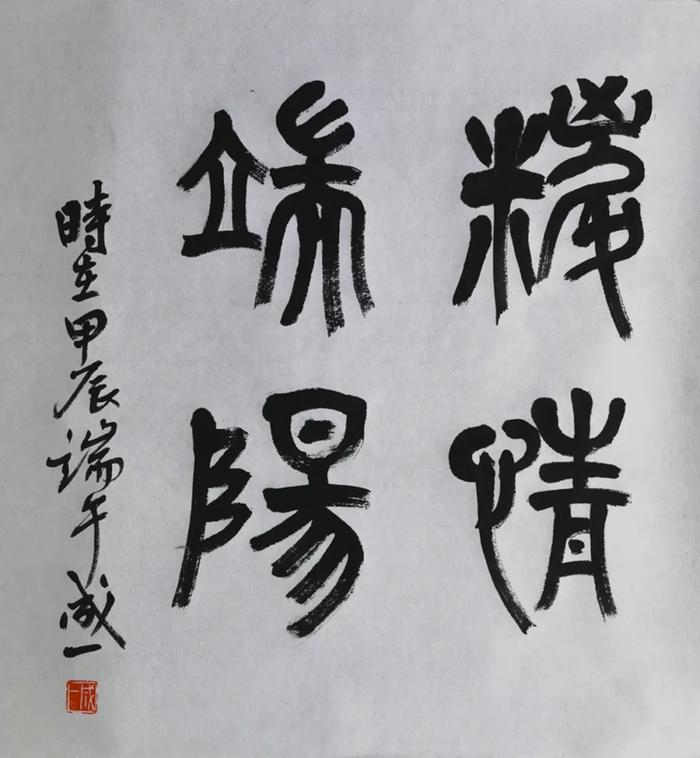 糉情
端陽
時在甲辰端午成一
成一